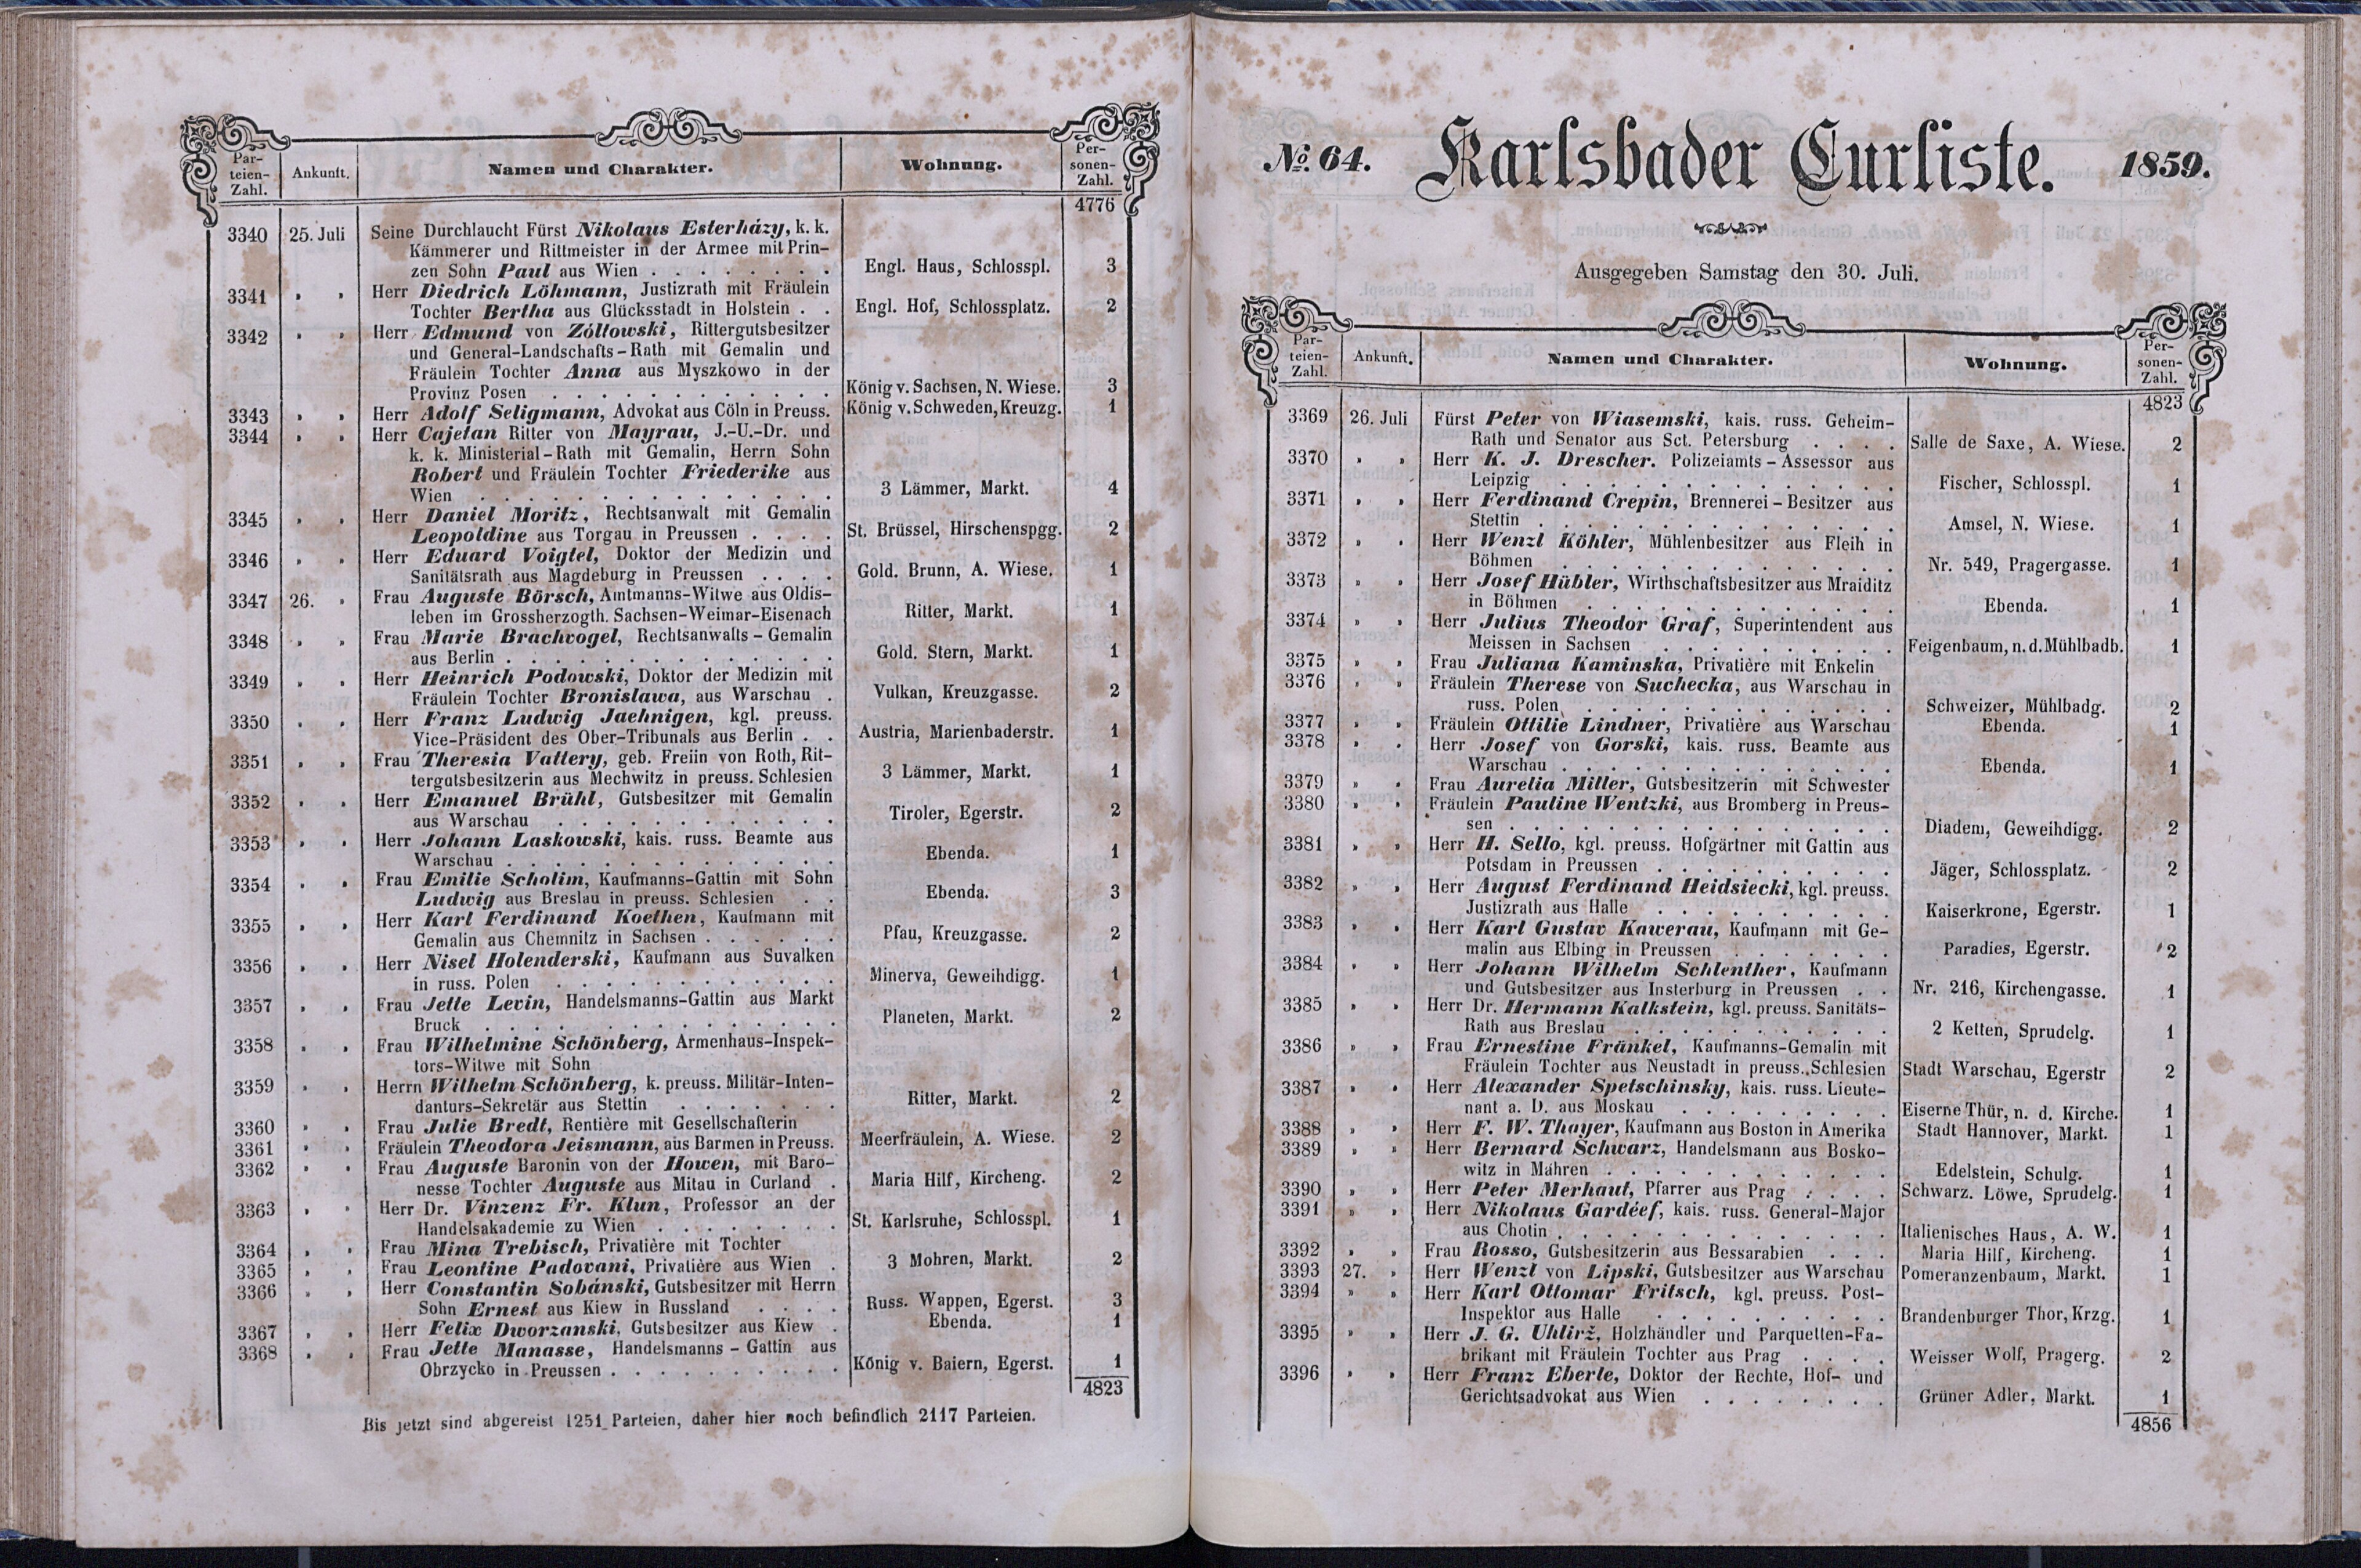 Par-
teien-
Zahl.
Ankunft.
Namen und Charakter.
Wohnung.
Per-
sonen-
Zahl.
4776
3340 25. Juli Seine Durchlaucht Fürst Nikolaus Esterházy, k. k.
Kämmerer und Rittmeister in der Armee mit Prin-
zen Sohn Paul aus Wien . . . . . . . . Engl. Haus, Schlosspl. 3
3341 „ „ Herr Diedrich Löhmann, Justizrath mit Fräulein
Tochter Bertha aus Glücksstadt in Holstein . . Engl. Hof, Schlossplatz. 2
3342 „ „ Herr Edmund von Zóltowski, Rittergutsbesitzer
und General-Landschafts-Rath mit Gemalin und
Fräulein Tochter Anna aus Myszkowo in der
Provinz Posen . . . . . . . . . . . König v. Sachsen, N. Wiese. 3
3343 „ „ Herr Adolf Seligmann, Advokat aus Cöln in Preuss. König v. Schweden, Kreuzg. 1
3344 „ „ Herr Cajetan Ritter von Mayrau, J.-U.-Dr. und
k. k. Ministerial-Rath mit Gemalin, Herrn Sohn
Robert und Fräulein Tochter Friederike aus
Wien . . . . . . . . . . . . . . 3 Lämmer, Markt. 4
3345 „ „ Herr Daniel Moritz, Rechtsanwalt mit Gemalin
Leopoldine aus Torgau in Preussen . . . . St. Brüssel, Hirschenspgg. 2
3346 „ „ Herr Eduard Voigtel, Doktor der Medizin und
Sanitätsrath aus Magdeburg in Preussen . . . . Gold. Brunn, A. Wiese. 1
3347 26. „ Frau Auguste Börsch, Amtmanns-Witwe aus Oldis-
leben im Grossherzogth. Sachsen-Weimar-Eisenach Ritter, Markt. 1
3348 „ „ Frau Marie Brachvogel, Rechtsanwalts-Gemalin
aus Berlin . . . . . . . . . . . . . Gold. Stern, Markt. 1
3349 „ „ Herr Heinrich Podowski, Doktor der Medizin mit
Fräulein Tochter Bronislawa, aus Warschau . Vulkan, Kreuzgasse. 2
3350 „ „ Herr Franz Ludwig Jaehnigen, kgl. preuss.
Vice-Präsident des Ober-Tribunals aus Berlin . . Austria, Marienbaderstr. 1
3351 „ „ Frau Theresia Vattery, geb. Freiin von Roth, Rit-
tergutsbesitzerin aus Mechwitz in preuss. Schlesien 3 Lämmer, Markt. 1
3352 „ „ Herr Emanuel Brühl, Gutsbesitzer mit Gemalin
aus Warschau . . . . . . . . . . . Tiroler, Egerstr. 2
3353 „ „ Herr Johann Laskowski, kais. russ. Beamte aus
Warschau . . . . . . . . . . . . . Ebenda. 1
3354 „ „ Frau Emilie Scholim, Kaufmanns-Gattin mit Sohn
Ludwig aus Breslau in preuss. Schlesien . . Ebenda. 3
3355 „ „ Herr Karl Ferdinand Koethen, Kaufmann mit
Gemalin aus Chemnitz in Sachsen . . . . . . Pfau, Kreuzgasse. 2
3356 „ „ Herr Nisel Holenderski, Kaufmann aus Suvalken
in russ. Polen . . . . . . . . . . . Minerva, Geweihdigg. 1
3357 „ „ Frau Jette Levin, Handelsmanns-Gattin aus Markt
Bruck . . . . . . . . . . . . . . Planeten, Markt. 2
3358 „ „ Frau Wilhelmine Schönberg, Armenhaus-Inspek-
tors-Witwe mit Sohn
3359 „ „ Herrn Wilhelm Schönberg, k. preuss. Militär-Inten-
danturs-Sekretär aus Stettin . . . . . . . Ritter, Markt. 2
3360 „ „ Frau Julie Bredt, Rentière mit Gesellschafterin
3361 „ „ Fräulein Theodora Jeismann, aus Barmen in Preuss. Meerfräulein, A. Wiese. 2
3362 „ „ Frau Auguste Baronin von der Howen, mit Baro-
nesse Tochter Auguste aus Mitau in Curland . Maria Hilf, Kircheng. 2
3363 „ „ Herr Dr. Vinzenz Fr. Klun, Professor an der
Handelsakademie zu Wien . . . . . . . . St. Karlsruhe, Schlosspl. 1
3364 „ „ Frau Mina Trebisch, Privatière mit Tochter
3365 „ „ Frau Leontine Padovani, Privatière aus Wien . 3 Mohren, Markt. 2
3366 „ „ Herr Constantin Sobánski, Gutsbesitzer mit Herrn
Sohn Ernest aus Kiew in Russland . . . . Russ. Wappen, Egerst. 3
3367 „ „ Herr Felix Dworzanski, Gutsbesitzer aus Kiew . Ebenda. 1
3368 „ „ Frau Jette Manasse, Handelsmanns-Gattin aus
Obrzycko in Preussen . . . . . . . . . . König v. Baiern, Egerst. 1
4823
Bis jetzt sind abgereist 1251 Parteien, daher hier noch befindlich 2117 Parteien.
No. 64. Karlsbader Curliste. 1859.
Ausgegeben Samstag den 30. Juli.
Par-
teien-
Zahl.
Ankunft.
Namen und Charakter.
Wohnung.
Per-
sonen-
Zahl.
4823
3369 26. Juli Fürst Peter von Wiasemski, kais. russ. Geheim-
Rath und Senator aus Sct. Petersburg . . . . Salle de Saxe, A. Wiese. 2
3370 „ „ Herr K. J. Drescher. Polizeiamts-Assessor aus
Leipzig . . . . . . . . . . . . . Fischer, Schlosspl. 1
3371 „ „ Herr Ferdinand Crepin, Brennerei-Besitzer aus
Stettin . . . . . . . . . . . . . . Amsel, N. Wiese. 1
3372 „ „ Herr Wenzl Köhler, Mühlenbesitzer aus Fleih in
Böhmen . . . . . . . . . . . . . Nr. 549, Pragergasse. 1
3373 „ „ Herr Josef Hübler, Wirthschaftsbesitzer aus Mraiditz
in Böhmen . . . . . . . . . . . . Ebenda. 1
3374 „ „ Herr Julius Theodor Graf, Superintendent aus
Meissen in Sachsen . . . . . . . . . . Feigenbaum, n. d. Mühlbadb. 1
3375 „ „ Frau Juliana Kaminska, Privatière mit Enkelin
3376 „ „ Fräulein Therese von Suchecka, aus Warschau in
russ. Polen . . . . . . . . . . . . Schweizer, Mühlbadg. 2
3377 „ „ Fräulein Ottilie Lindner, Privatière aus Warschau Ebenda. 1
3378 „ „ Herr Josef von Gorski, kais. russ. Beamte aus
Warschau . . . . . . . . . . . . . Ebenda. 1
3379 „ „ Frau Aurelia Miller, Gutsbesitzerin mit Schwester
3380 „ „ Fräulein Pauline Wentzki, aus Bromberg in Preus-
sen . . . . . . . . . . . . . . . Diadem, Geweihdigg. 2
3381 „ „ Herr H. Sello, kgl. preuss. Hofgärtner mit Gattin aus
Potsdam in Preussen . . . . . . . . . Jäger, Schlossplatz. 2
3382 „ „ Herr August Ferdinand Heidsiecki, kgl. preuss.
Justizrath aus Halle . . . . . . . . . Kaiserkrone, Egerstr. 1
3383 „ „ Herr Karl Gustav Kawerau, Kaufmann mit Ge-
malin aus Elbing in Preussen . . . . . . . Paradies, Egerstr. 2
3384 „ „ Herr Johann Wilhelm Schlenther, Kaufmann
und Gutsbesitzer aus Insterburg in Preussen . . Nr. 216, Kirchengasse. 1
3385 „ „ Herr Dr. Hermann Kalkstein, kgl. preuss. Sanitäts-
Rath aus Breslau . . . . . . . . . . 2 Ketten, Sprudelg. 1
3386 „ „ Frau Ernestine Fränkel, Kaufmanns-Gemalin mit
Fräulein Tochter aus Neustadt in preuss. Schlesien Stadt Warschau, Egerstr 2
3387 „ „ Herr Alexander Spetschinsky, kais. russ. Lieute-
nant a. D. aus Moskau . . . . . . . . . Eiserne Thür, n. d. Kirche. 1
3388 „ „ Herr F. W. Thayer, Kaufmann aus Boston in Amerika Stadt Hannover, Markt. 1
3389 „ „ Herr Bernard Schwarz, Handelsmann aus Bosko-
witz in Mähren . . . . . . . . . . . Edelstein, Schulg. 1
3390 „ „ Herr Peter Merhaut, Pfarrer aus Prag . . . . Schwarz. Löwe, Sprudelg. 1
3391 „ „ Herr Nikolaus Gardéef, kais. russ. General-Major
aus Chotin . . . . . . . . . . . . . Italienisches Haus, A. W. 1
3392 „ „ Frau Rosso, Gutsbesitzerin aus Bessarabien . . . Maria Hilf, Kircheng. 1
3393 27. „ Herr Wenzl von Lipski, Gutsbesitzer aus Warschau Pomeranzenbaum, Markt. 1
3394 „ „ Herr Karl Ottomar Fritsch, kgl. preuss. Post-
Inspektor aus Halle . . . . . . . . . . Brandenburger Thor, Krzg. 1
3395 „ „ Herr J. G. Uhlirž, Holzhändler und Parquetten-Fa-
brikant mit Fräulein Tochter aus Prag . . . . Weisser Wolf, Pragerg. 2
3396 „ „ Herr Franz Eberle, Doktor der Rechte, Hof- und
Gerichtsadvokat aus Wien . . . . . . . Grüner Adler, Markt. 1
4856